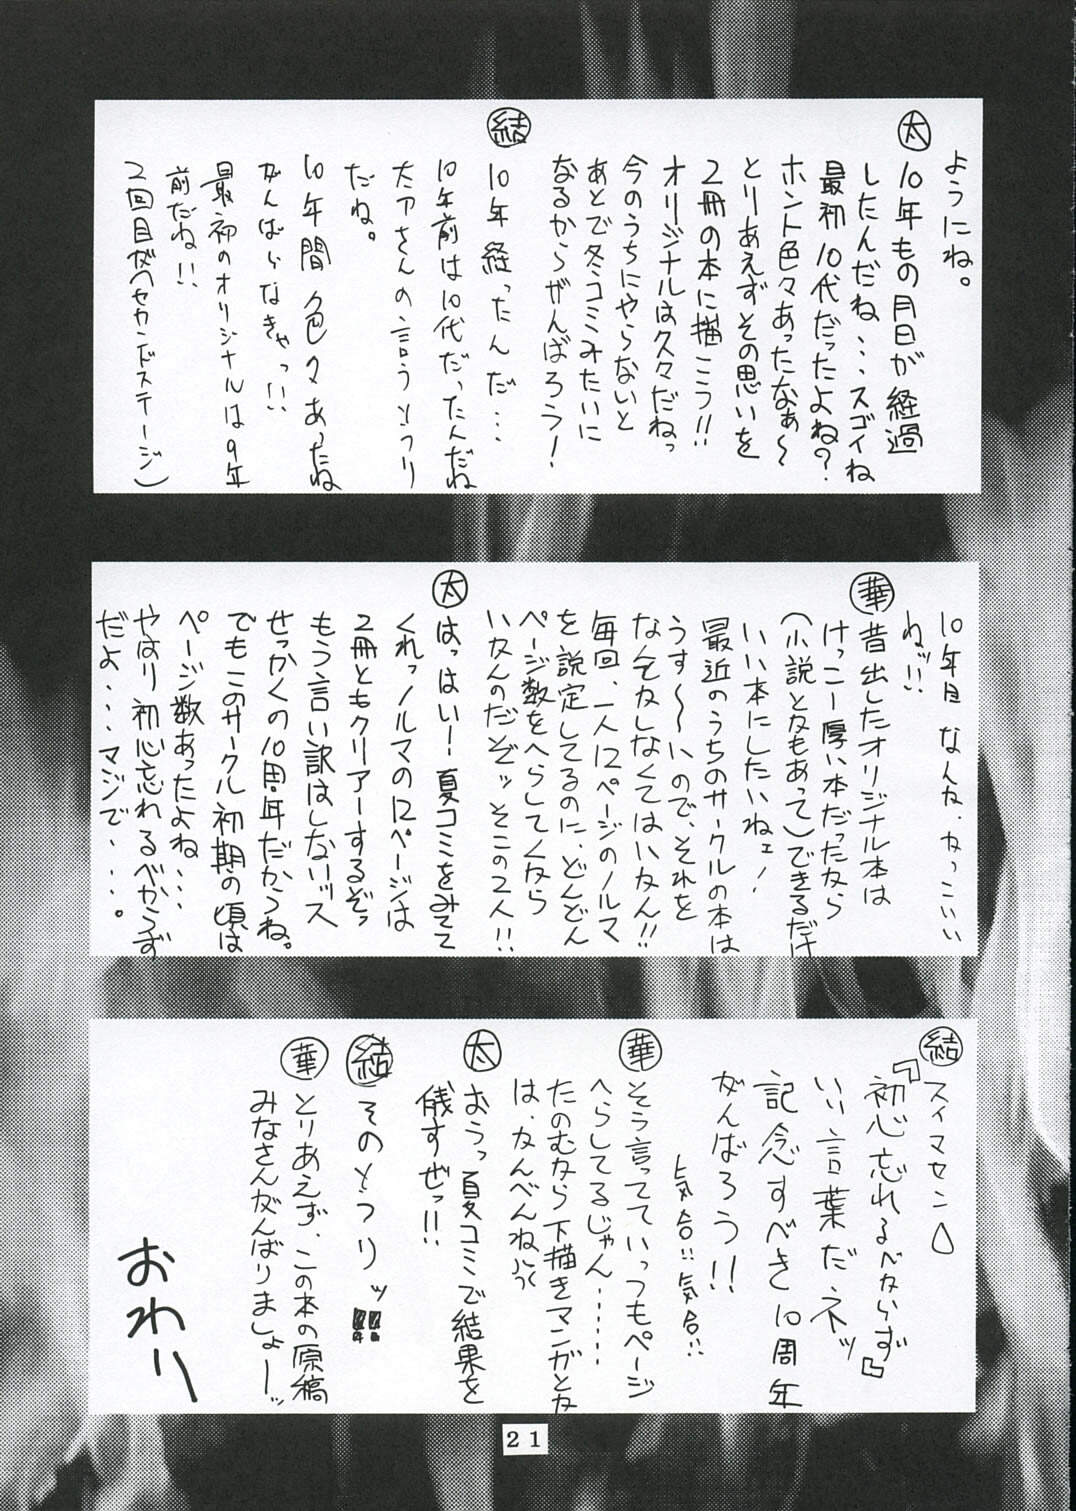 ようにね。
太
10年もの月日が経過
したんだね・・・スゴイね
最初10代だったよね?
ホント色々あったなぁ〜
とりあえずその思いを
2冊の本に描こう!!
オリジナルは久々だねっ
今のうちにやらないと
あとで冬コミみたいに
なるからがんばろう!
結
10年経ったんだ・・・
10年前は10代だったんだね
さんの言うとうり
だね。
10年間色々あったね
がんばらなきゃっ!!
最初のオリジナルは9年
前だね!!
2回目が(セカンドステージ)
10年目なんか、かっこいい
ねッ!!
華
昔出したオリジナル本は
けっこー厚い本だったから
(小説とかもあって)できるだけ
いい本にしたいねェ!
最近のうちのサークルの本は
うす〜〜いので、それを
なんとかしなくてはいかん!!
毎回、一人12ページのノルマ
を説定してるのに、どんどん
ページ数をへらしてくから
いかんのだぞッそこの2人!!
太
はっはい!夏コミをみてて
くれっノルマの12ページは
2冊ともクリアーするぞっ
もう言い訳はしないッス
せっかくの10周年だからね。
でもこのサークル初期の頃は
ページ数あったよね・・・
やはり初心忘れるべからず
だよ・・・マジで・・・。
結
スイマセン
『初心忘れるべからず』
いい言葉だネッ
記念すべき10周年
がんばろう!!
気合!!気合!!
華
そう言ってていっつもページ
へらしてるじゃん・・・・・・
たのむから下描きマンガとか
は、かんべんね
太
おうっ夏コミで結果を
儀すぜっ!!
結
そのとうりッ!!
華
とりあえず、この本の原稿
みなさんがんばりましょーッ
おわり
21